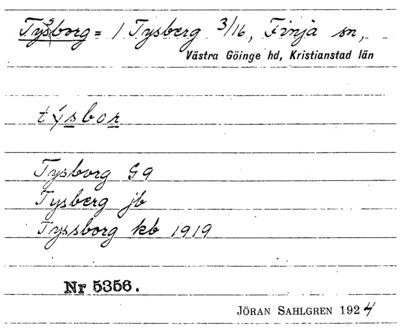 Tysborg = 1 Tysberg 3/16, Finja sn,
Västra Göinge hd, Kristianstad län
týsbor
Tysborg G9
Tysberg jb
Tyssborg kb 1919
Nr 5356.
JÖRAN SAHLGREN 1924